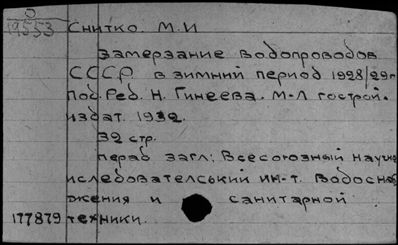 О
19553 Снитко. М.И
Замерзание водопроводов
СССР в зимний период 1928/29г
Под. Ред. Н. Гинеева. М-Л гострой.
издат. 1932.
32 стр.
перед загл: Всесоюзный научн
иследователський ин-т. Водосна
жения и санитарной
177879 техники.